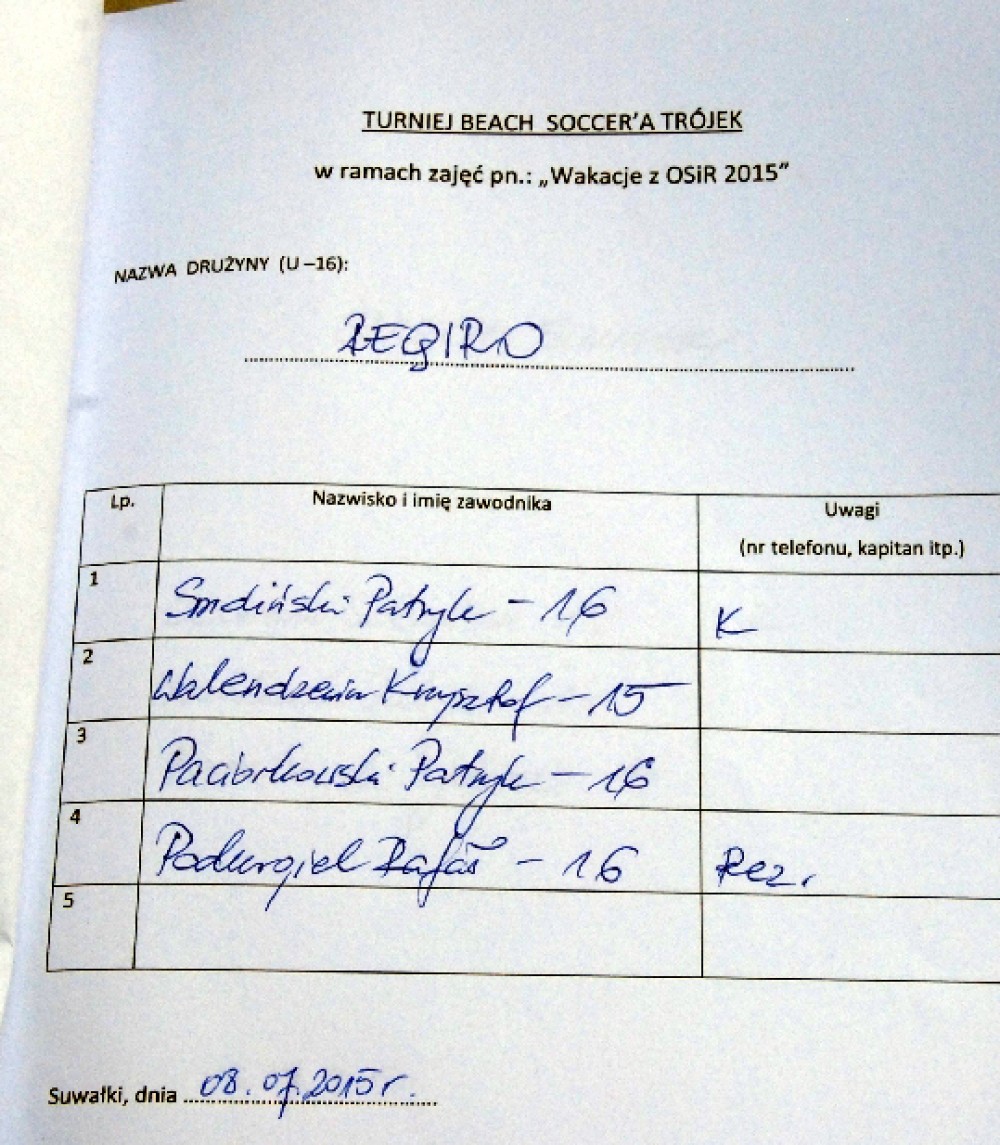 TURNIEJ BEACH SOCCER'A TRÓJEK
w ramach zajęć pn.: „Wakacje z OSiR 2015”
NAZWA DRUŻYNY (U –16):
Lp. Nazwisko i imię zawodnika Uwagi
(nr telefonu, kapitan itp.)
1 Patryk – 16 K
2 Krzysztof – 15
3 Paciorkowski Patryk – 16
4 Podurgiel Rafał – 16 Rez.
5
Suwałki, dnia 08.07.2015 r.